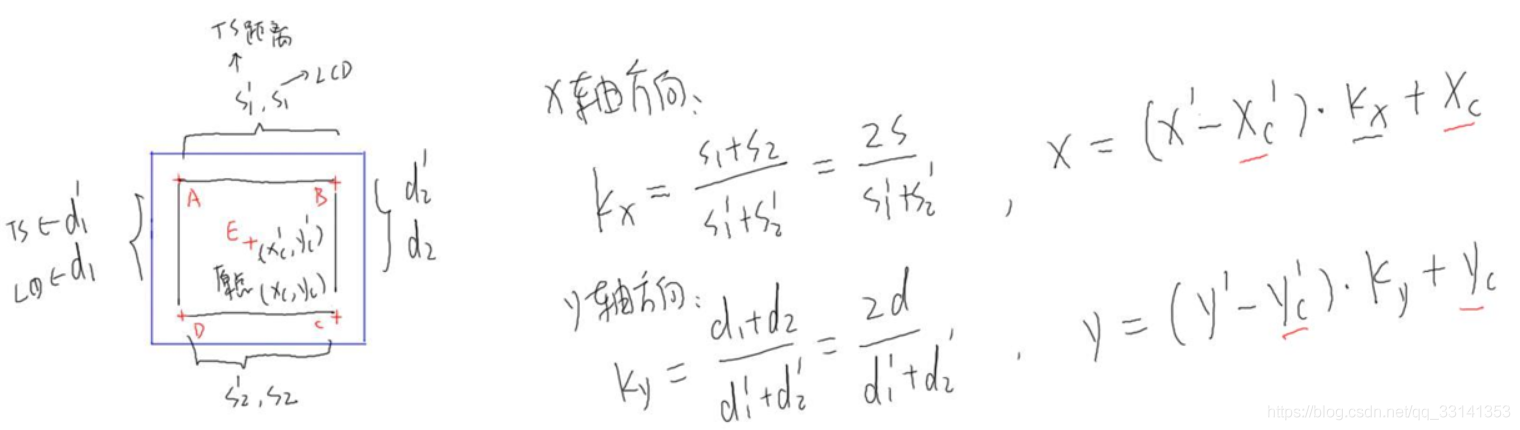 TS距离
s₁', s₁ → LCD
A B
TS ← d₁'
LCD ← d₁
d₂'
d₂
E (x'c, y'c)
原点 (xc, yc)
D C
s₂', s₂
X轴方向:
kx = (s₁+s₂)/(s₁'+s₂') = 2s/(s₁'+s₂') , x = (x' - x'c) · kx + xc
y轴方向:
ky = (d₁+d₂)/(d₁'+d₂') = 2d/(d₁'+d₂') , y = (y' - y'c) · ky + yc
https://blog.csdn.net/qq_33141353